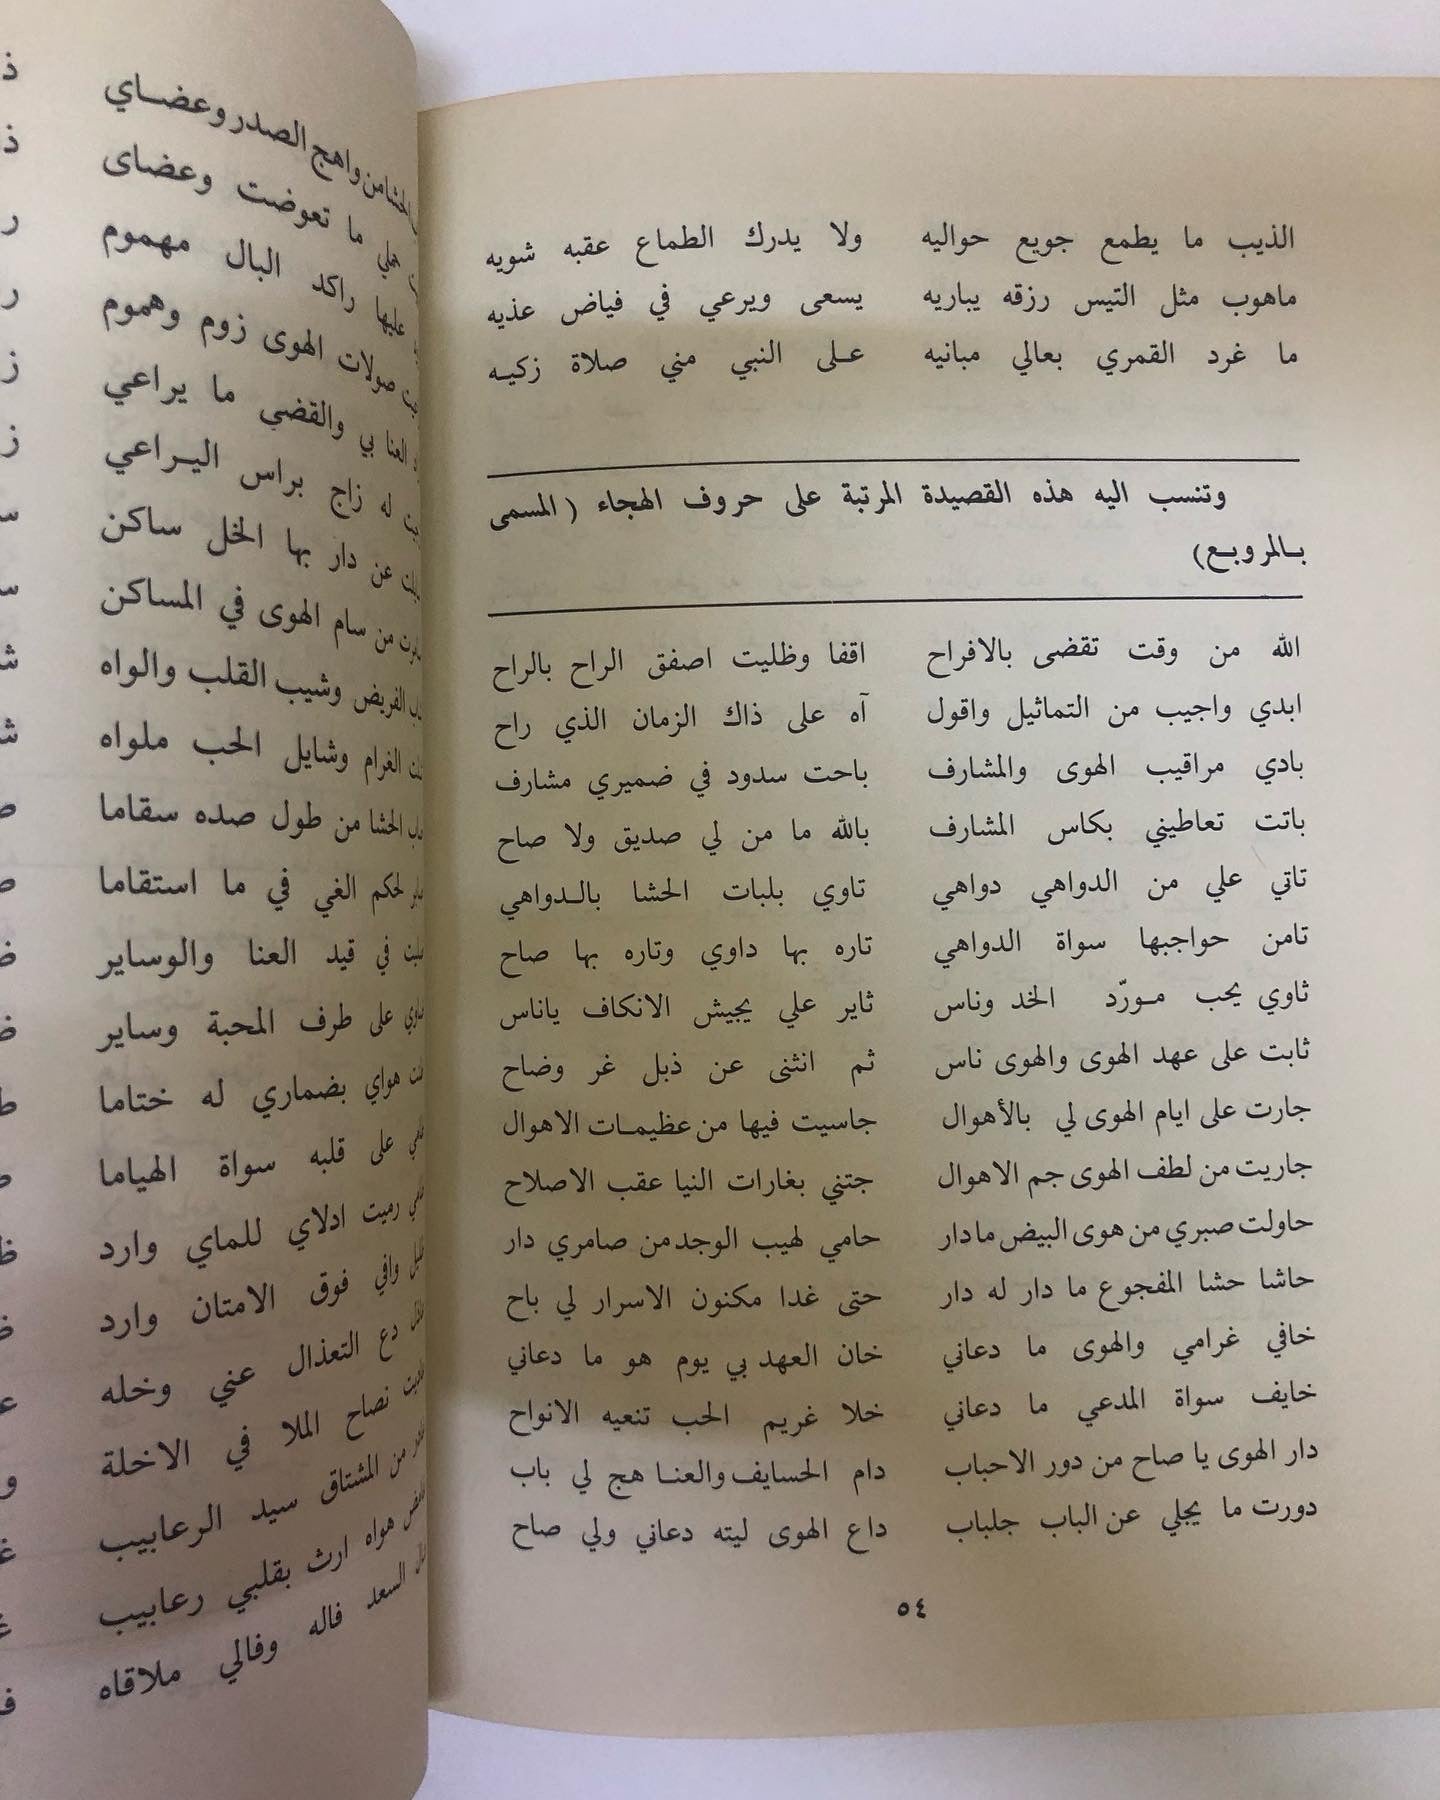 الذيب ما يطمع جويع حواليه ولا يدرك الطماع عقبه شويه
ماهوب مثل التيس رزقه يباريه يسعى ويرعي في فياض عذيه
ما غرد القمري بعالي مبانيه على النبي مني صلاة زكيه
وتنسب اليه هذه القصيدة المرتبة على حروف الهجاء ( المسمى
بالمروبع)
الله من وقت تقضى بالافراح اقفا وظليت اصفق الراح بالراح
ابدي واجيب من التماثيل واقول آه على ذاك الزمان الذي راح
بادي مراقيب الهوى والمشارف باحت سدود في ضميري مشارف
باتت تعاطيني بكاس المشارف بالله ما من لي صديق ولا صاح
تاتي علي من الدواهي دواهي تاوي بلبات الحشا بالدواهي
تامن حواجبها سواة الدواهي تاره بها داوي وتاره بها صاح
ثاوي يحب مورّد الخد وناس ثاير علي يجيش الانكاف ياناس
ثابت على عهد الهوى والهوى ناس ثم انثنى عن ذبل غر وضاح
جارت على ايام الهوى لي بالأهوال جاسيت فيها من عظيمات الاهوال
جاريت من لطف الهوى جم الاهوال جتني بغارات النيا عقب الاصلاح
حاولت صبري من هوى البيض ما دار حامي لهيب الوجد من صامري دار
حاشا حشا المفجوع ما دار له دار حتى غدا مكنون الاسرار لي باح
خافي غرامي والهوى ما دعاني خان العهد بي يوم هو ما دعاني
خايف سواة المدعي ما دعاني خلا غريم الحب تنعيه الانواح
دار الهوى يا صاح من دور الاحباب دام الحسايف والعنا هج لي باب
دورت ما يجلي عن الباب جلباب داع الهوى ليته دعاني ولي صاح
٥٤
الحشا من واهج الصدر وعضاي
هملي ما تعوضت وعضاى
عليها راكد البال مهموم
صولات الهوى زوم وهموم
العنا بي والقضى ما يراعي
له زاج براس اليراعي
عن دار بها الخل ساكن
من سام الهوى في المساكن
الفريض وشيب القلب والواه
الغرام وشايل الحب ملواه
الحشا من طول صده سقاما
لحكم الغي في ما استقاما
في قيد العنا والوساير
على طرف المحبة وساير
هواي بضماري له ختاما
على قلبه سواة الهياما
رميت ادلاي للماي وارد
وافي فوق الامتان وارد
دع التعذال عني وخله
نصاح الملا في الاخلة
من المشتاق سيد الرعابيب
هواه ارث بقلبي رعابيب
السعد فاله وفالي ملاقاه